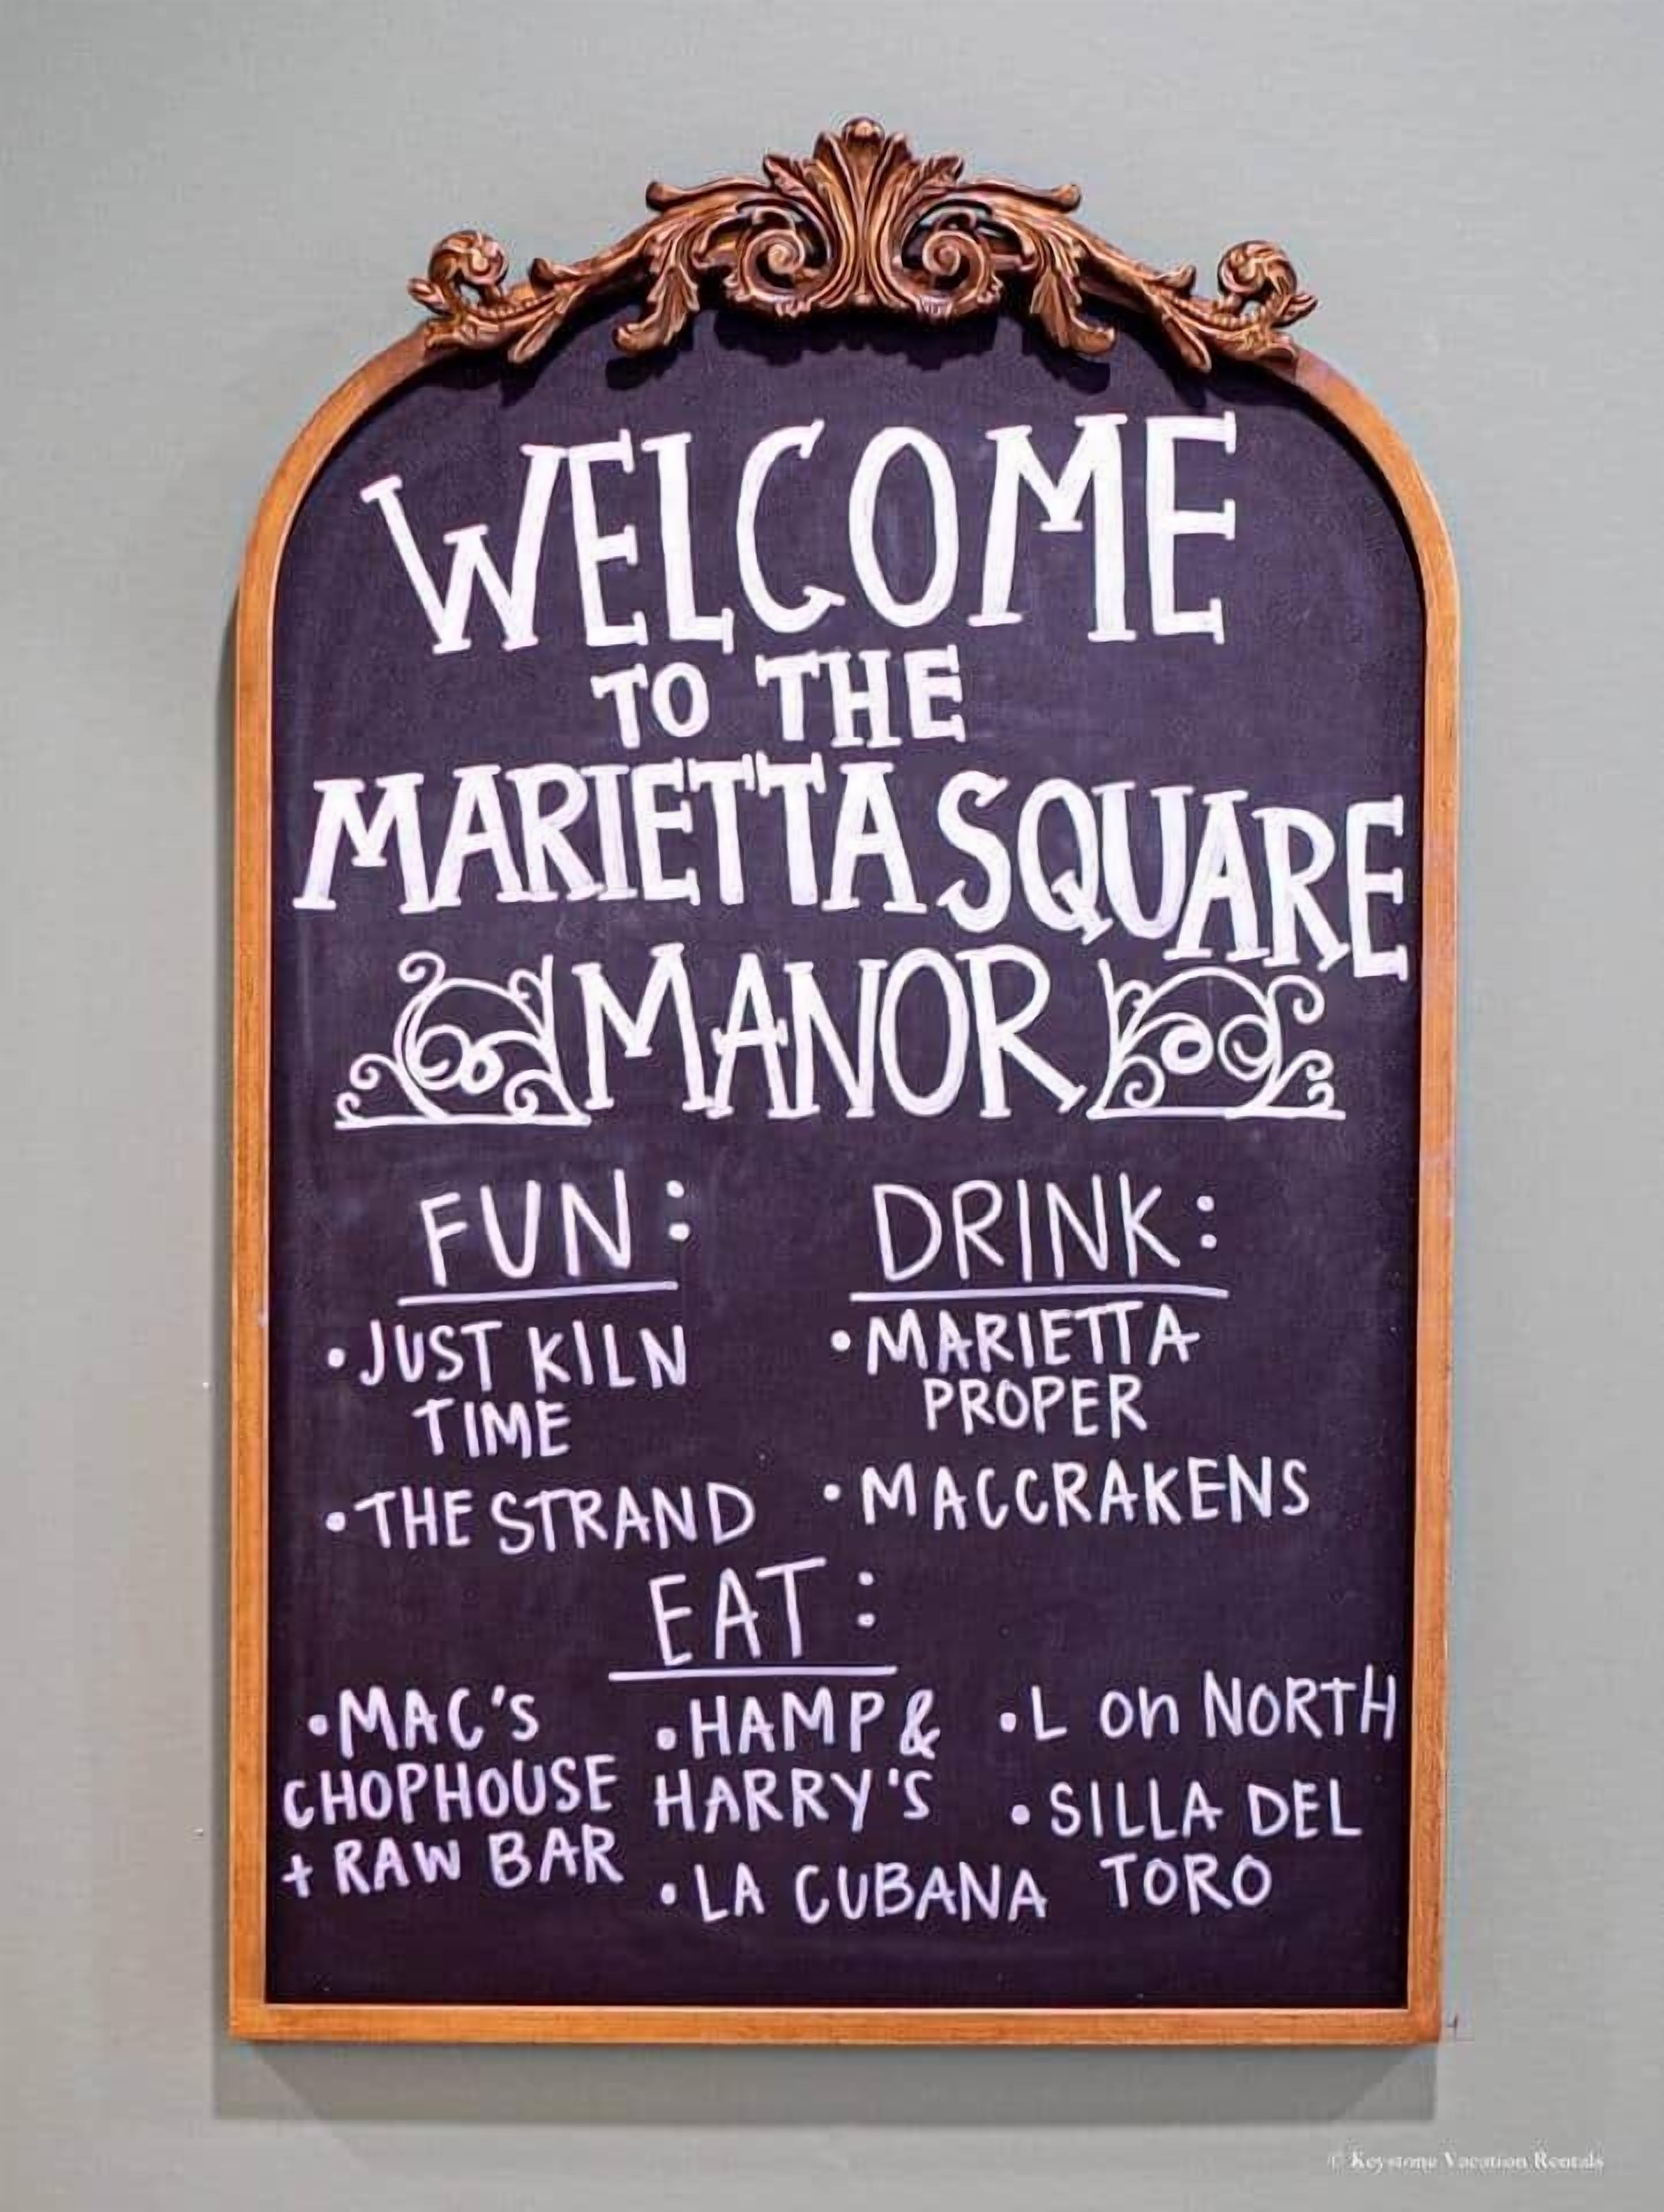 WELCOME
TO THE
MARIETTA SQUARE
MANOR
FUN:
• JUST KILN
TIME
• THE STRAND
DRINK:
• MARIETTA
PROPER
• MACCRAKENS
EAT:
• MAC'S
CHOPHOUSE
+ RAW BAR
• HAMP &
HARRY'S
• LA CUBANA
• L on NORTH
• SILLA DEL
TORO
© Keystone Vacation Rentals